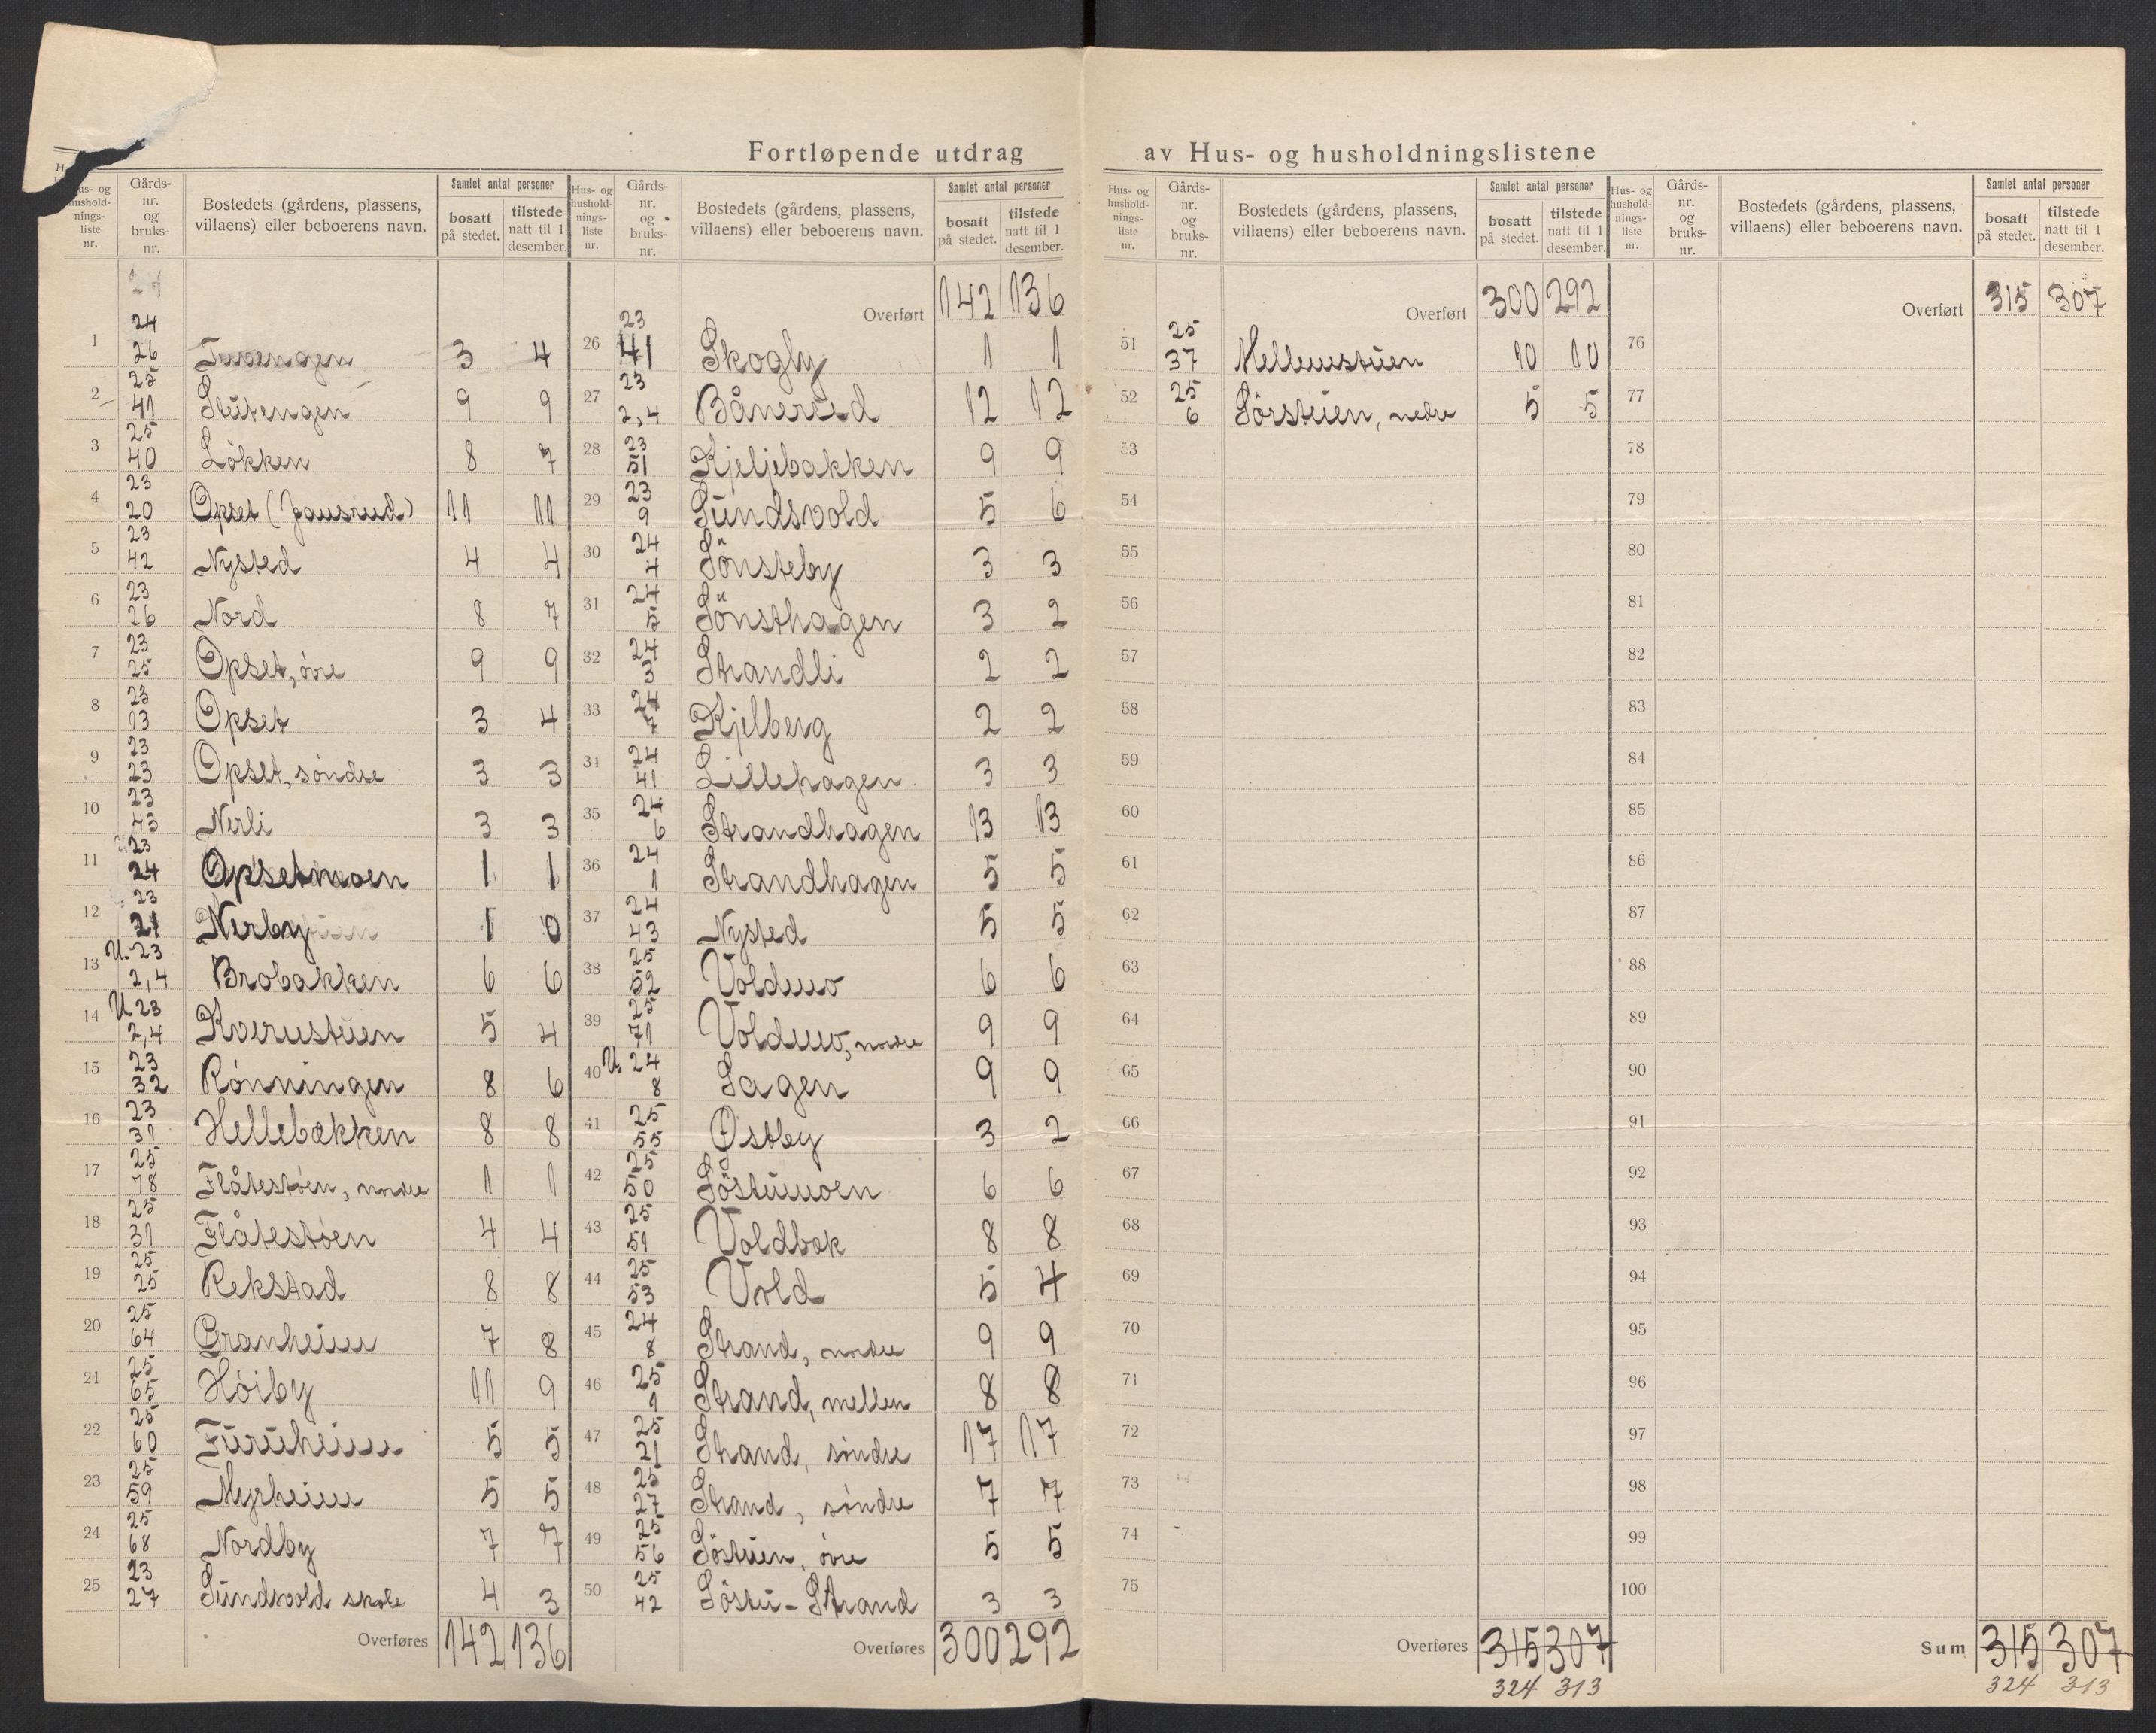 Fortløpende utdrag av Hus- og husholdningslistene
Hus- og husholdningsliste nr. | Gårds-nr. og bruks-nr. | Bostedets (gårdens, plassens, villaens) eller beboerens navn. | Samlet antal personer bosatt på stedet. | tilstede natt til 1 desember.
1 | 24 26 | Tuvengen | 3 | 4
2 | 25 41 | Stutengen | 9 | 9
3 | 25 40 | Løkken | 8 | 7
4 | 23 20 | Opset (Jonsrud) | 11 | 11
5 | 23 42 | Nysted | 4 | 4
6 | 23 26 | Nord | 8 | 7
7 | 23 25 | Opset, øvre | 9 | 9
8 | 23 13 | Opset | 3 | 4
9 | 23 23 | Opset, søndre | 3 | 3
10 | 23 43 | Nerli | 3 | 3
11 | 23 24 | Opsetmoen | 1 | 1
12 | 23 21 | Nerby | 1 | 0
13 | U. 23 2,4 | Brobakken | 6 | 6
14 | U 23 2,4 | Kvernstuen | 5 | 4
15 | 23 32 | Rønningen | 8 | 6
16 | 23 31 | Hellebækken | 8 | 8
17 | 25 78 | Flåtestøen, nordre | 1 | 1
18 | 25 31 | Flåtestøen | 4 | 4
19 | 25 25 | Rekstad | 8 | 8
20 | 25 64 | Granheim | 7 | 8
21 | 25 65 | Høiby | 11 | 9
22 | 25 60 | Furuheim | 5 | 5
23 | 25 59 | Myrheim | 5 | 5
24 | 25 68 | Nordby | 7 | 7
25 | 23 27 | Sundvold skole | 4 | 3
Overføres | 142 | 136
Hus- og husholdningsliste nr. | Gårds-nr. og bruks-nr. | Bostedets (gårdens, plassens, villaens) eller beboerens navn. | Samlet antal personer bosatt på stedet. | tilstede natt til 1 desember.
Overført | 142 | 136
26 | 23 41 | Skogly | 1 | 1
27 | 23 2,4 | Bånerud | 12 | 12
28 | 23 51 | Kjeljebakken | 9 | 9
29 | 23 9 | Sundsvold | 5 | 6
30 | 24 4 | Sønsteby | 3 | 3
31 | 24 5 | Sønsthagen | 3 | 2
32 | 24 3 | Strandli | 2 | 2
33 | 24 7 | Kjelberg | 2 | 2
34 | 24 41 | Lillehagen | 3 | 3
35 | 24 6 | Strandhagen | 13 | 13
36 | 24 1 | Strandhagen | 5 | 5
37 | 24 43 | Nysted | 5 | 5
38 | 25 52 | Voldmo | 6 | 6
39 | 25 71 | Voldmo, nordre | 9 | 9
40 | U. 24 8 | Sagen | 9 | 9
41 | 25 55 | Østby | 3 | 2
42 | 25 50 | Søstumoen | 6 | 6
43 | 25 51 | Voldbak | 8 | 8
44 | 25 53 | Vold | 5 | 4
45 | 24 8 | Strand, nordre | 9 | 9
46 | 25 1 | Strand, mellem | 8 | 8
47 | 25 21 | Strand, søndre | 17 | 17
48 | 25 27 | Strand, søndre | 7 | 7
49 | 25 56 | Søstuen, øvre | 5 | 5
50 | 25 42 | Søstu-Strand | 3 | 3
Overføres | 300 | 292
Hus- og husholdningsliste nr. | Gårds-nr. og bruks-nr. | Bostedets (gårdens, plassens, villaens) eller beboerens navn. | Samlet antal personer bosatt på stedet. | tilstede natt til 1 desember.
Overført | 300 | 292
51 | 25 37 | Mellemstuen | 10 | 10
52 | 25 6 | Sørstuen, nedre | 5 | 5
53
54
55
56
57
58
59
60
61
62
63
64
65
66
67
68
69
70
71
72
73
74
75
Overføres | 315 | 307
324 313
Hus- og husholdningsliste nr. | Gårds-nr. og bruks-nr. | Bostedets (gårdens, plassens, villaens) eller beboerens navn. | Samlet antal personer bosatt på stedet. | tilstede natt til 1 desember.
Overført | 315 | 307
76
77
78
79
80
81
82
83
84
85
86
87
88
89
90
91
92
93
94
95
96
97
98
99
100
Sum | 315 | 307
324 313